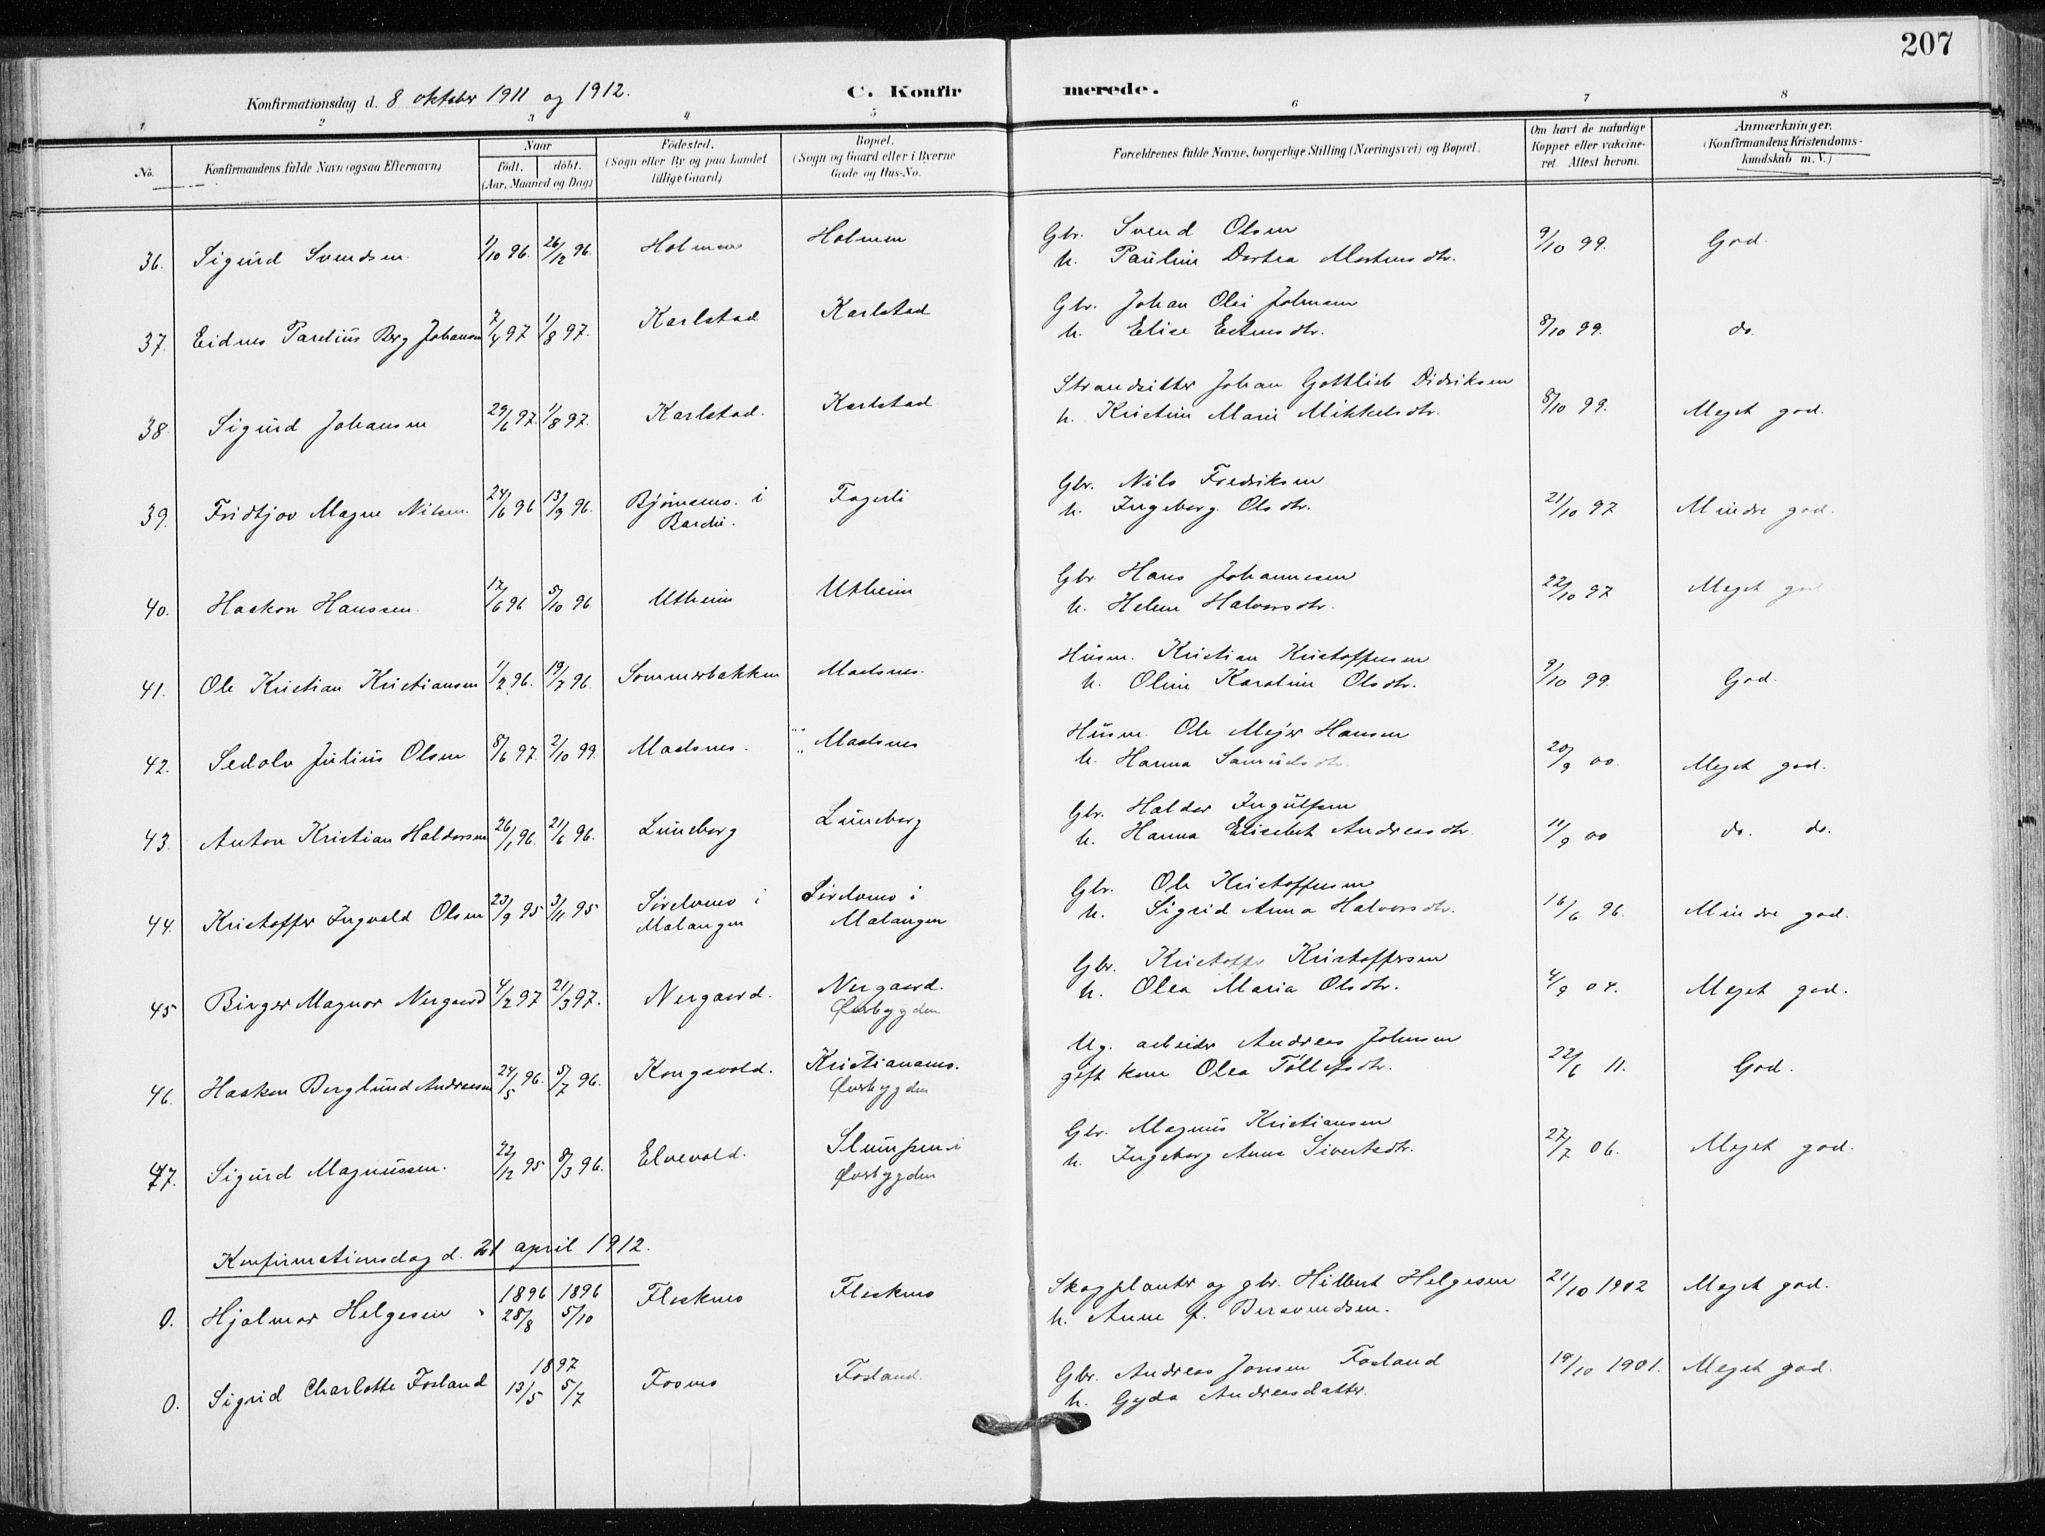 207
Konfirmationsdag d. 8 oktober 1911 og 1912. C. Konfirmerede.
1 2 3 4 5 6 7 8
No. Konfirmandens fulde Navn (ogsaa Efternavn) Naar født. døbt. (Aar, Maaned og Dag) Fødested. (Sogn eller By og paa Landet tillige Gaard) Bopæl. (Sogn og Gaard eller i Byerne Gade og Hus-No. Forældrenes fulde Navne, borgerlige Stilling (Næringsvei) og Bopæl. Om havt de naturlige Kopper eller vakcineret. Attest herom. Anmærkninger. (Konfirmandens Kristendomskundskab m. V.)
36. Sigurd Svendsen 1/10 96. 26/12 96. Holmen Holmen Gbr. Svend Olsen 9/10 99. God.
h. Pauline Dortea Mortensdtr.
37. Eidnes Parelius Berg Johansen 7/4 97 1/8 97. Karlstad Karlstad Gbr. Johan Olai Johnsen 8/10 99. do.
h. Elise Estensdtr.
38. Sigurd Johansen 29/6 97. 1/8 97. Karlstad. Karlstad Strandsitter Johan Gottlieb Didriksen 8/10 99. Meget god.
h. Kristine Marie Mikkelsdtr.
39. Fridtjov Magne Nilsen. 24/6 96 13/9 96. Bjørnemo. i Bardu. Fagerli Gbr. Nils Fredriksen 21/10 97 Mindre god.
h. Ingeborg Olsdtr.
40. Haakon Hanssen. 17/6 96 5/10 96 Utheim Utheim Gbr. Hans Johannesen 22/10 97 Meget god
h. Helene Halvorsdtr.
41. Ole Kristian Kristiansen 1/2 96. 19/7 96. Sommerbakken Maalsnes. Husm. Kristian Kristoffersen 9/10 99. God.
h. Oline Karoline Olsdtr.
42. Sedolv Julius Olsen 8/6 97. 2/10 99. Maalsnes. Maalsnes Husm. Ole Mejer Hansen 20/9 00. Meget god.
h. Hanna Samuelsdtr.
43. Anton Kristian Haldorsen 26/1 96. 21/6 96. Luneborg Luneborg Gbr. Haldor Ingulfsen 11/9 00 do. do.
h. Hanna Elisebet Andreasdtr.
44. Kristoffer Ingvald Olsen 23/9 95 3/11 95 Sørelvmo i Malangen Sørelvmo i Malangen Gbr. Ole Kristoffersen 16/6 96. Mindre god.
h. Sigrid Anna Halvorsdtr.
45 Birger Magnor Nergaard 4/2 97 21/3 97. Nergaard. Nergaard. Øverbygden Gbr. Kristoffer Kristoffersen 4/9 04. Meget god.
h. Olea Maria Olsdtr.
46. Haakon Berglund Andreasen 24/5 96. 5/7 96. Kongsvold. Kristianamo. Øverbygden Ug. arbeider Andreas Johnsen 22/6 11. God.
gift kone Olea Tollefsdtr.
47. Sigurd Magnussen. 22/12 95 8/3 96. Elvevold. Slumpen i Øverbygden Gbr. Magnus Kristiansen 27/7 06. Meget god.
h. Ingeborg Anna Sivertsdtr.
Konfirmationsdag d. 21 april 1912.
0. Hjalmar Helgesen 1896 28/8 1896 5/10 Fleskmo Fleskmo Skogplanter og gbr. Hilbert Helgesen 21/10 1902 Meget god.
h. Anne f. Bersvendsen.
0. Sigrid Charlotte Fosland 1897 13/5 5/7 Fosmo Fosland. Gbr. Andreas Jonsen Fosland 19/10 1901. Meget god.
h. Gyda Andreasdatter.